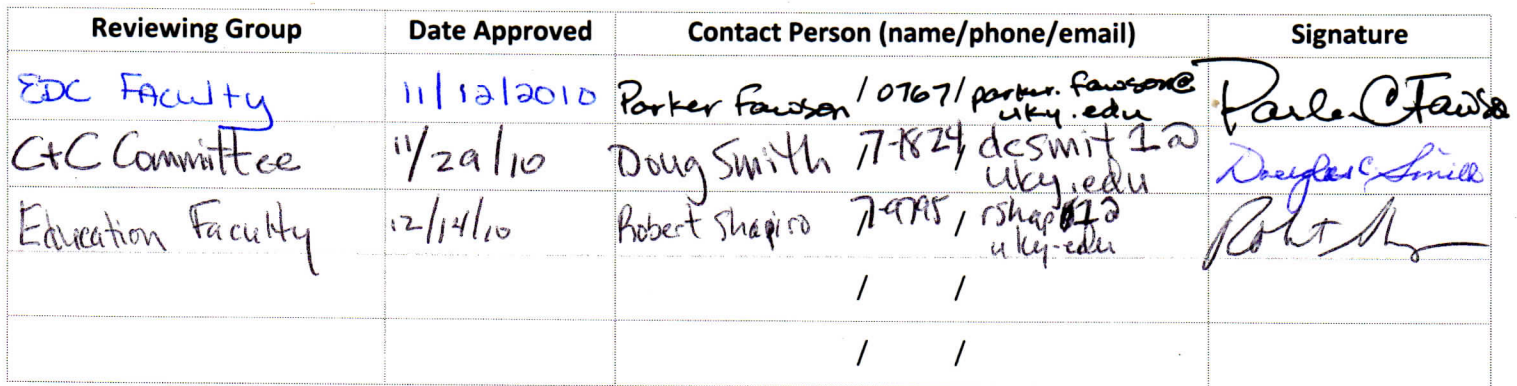 Reviewing Group Date Approved Contact Person (name/phone/email) Signature
EDC Faculty 11/12/2010 Parker Fawson / 0767 / parker.fawson@ Parker C Fawson
uky.edu
C+C Committee 11/29/10 Doug Smith / 7-1824 / dcsmit1@ Douglas C Smith
uky.edu
Education Faculty 12/14/10 Robert Shapiro / 7-9795 / Robert
uky.edu
/ /
/ /